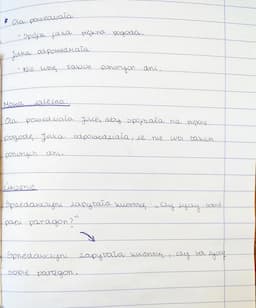 Ola powiedziała
- Spójrz jaka piękna pogoda.
Julka odpowiedziała
- Nie wolę takich ponurych dni.
Mowa zależna
Ola powiedziała Julce, aby spojrzała na
pogodę, Julka odpowiedziała, że nie woli takich
ponurych dni.
Ćwiczenie
Sprzedawczyni zapytała klientkę, „Czy życzy sobie
pani paragon?"
Sprzedawczyni zapytała klientkę, czy ta życzy
sobie paragon.